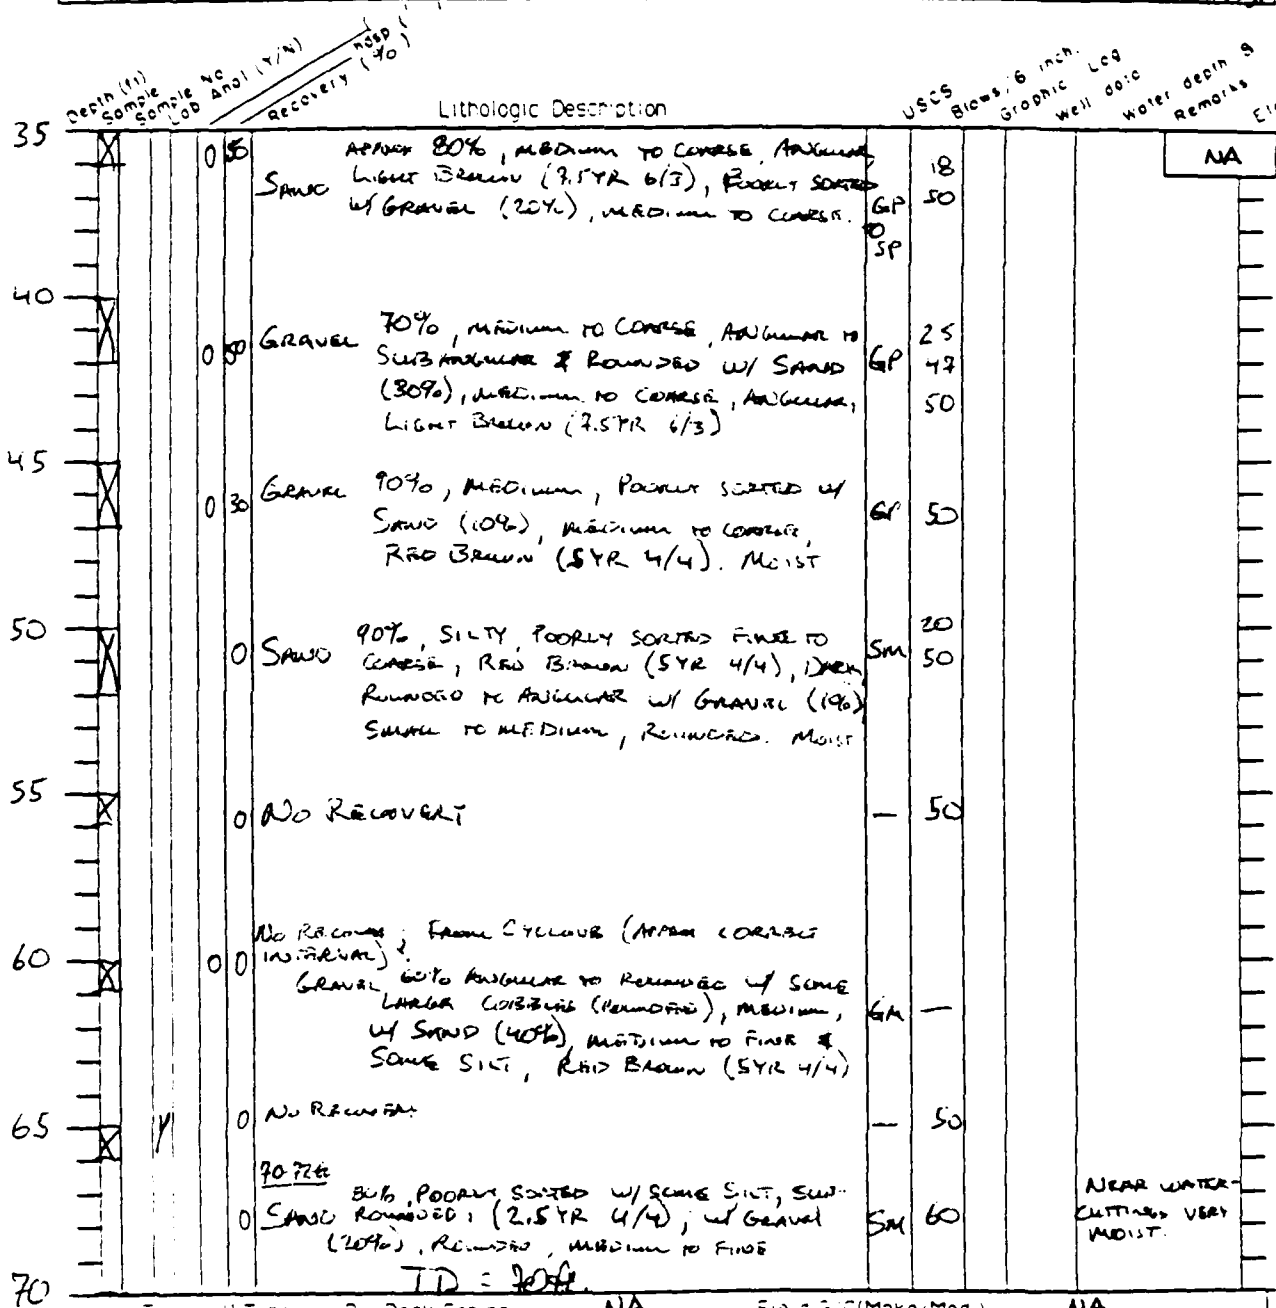 Depth (ft)
Sample
Sample No
Lab Anal (Y/N)
Recovery (%)
Lithologic Description
USCS
Blows/6 inch.
Graphic Log
Well data
Water depth &
Remarks
35
0
APPROX 80%, MEDIUM TO COARSE, ANGULAR,
SAND LIGHT BROWN (7.5YR 6/3), POORLY SORTED
W/ GRAVEL (20%), MEDIUM TO COARSE.
GP
TO
SP
18
50
NA
40
0 50 GRAVEL 70%, MEDIUM TO COARSE, ANGULAR TO
SUBANGULAR & ROUNDED W/ SAND
(30%), MEDIUM TO COARSE, ANGULAR,
LIGHT BROWN (7.5YR 6/3)
GP
25
47
50
45
0 30 GRAVEL 90%, MEDIUM, POORLY SORTED W/
SAND (10%), MEDIUM TO COARSE,
RED BROWN (5YR 4/4). MOIST
GP 50
50
0 SAND 90%, SILTY, POORLY SORTED FINE TO
COARSE, RED BROWN (5YR 4/4), DARK,
ROUNDED TO ANGULAR W/ GRAVEL (1%)
SMALL TO MEDIUM, ROUNDED. MOIST
SM
20
50
55
0 NO RECOVERY — 50
60
0 0 NO RECOVERY; FROM CYCLONE (APPROX CORRECT
INTERVAL):
GRAVEL 60% ANGULAR TO ROUNDED W/ SOME
LARGER COBBLES (ROUNDED), MEDIUM,
W/ SAND (40%), MEDIUM TO FINE &
SOME SILT, RED BROWN (5YR 4/4)
GM —
65
Y
0 NO RECOVERY — 50
70-72ft
80%, POORLY SORTED W/ SOME SILT, SUB-
0 SAND ROUNDED, (2.5YR 4/4), W/ GRAVEL
(20%), ROUNDED, MEDIUM TO FINE
SM 60
NEAR WATER-
CUTTINGS VERY
MOIST.
TD = 70ft.
70
NA
NA